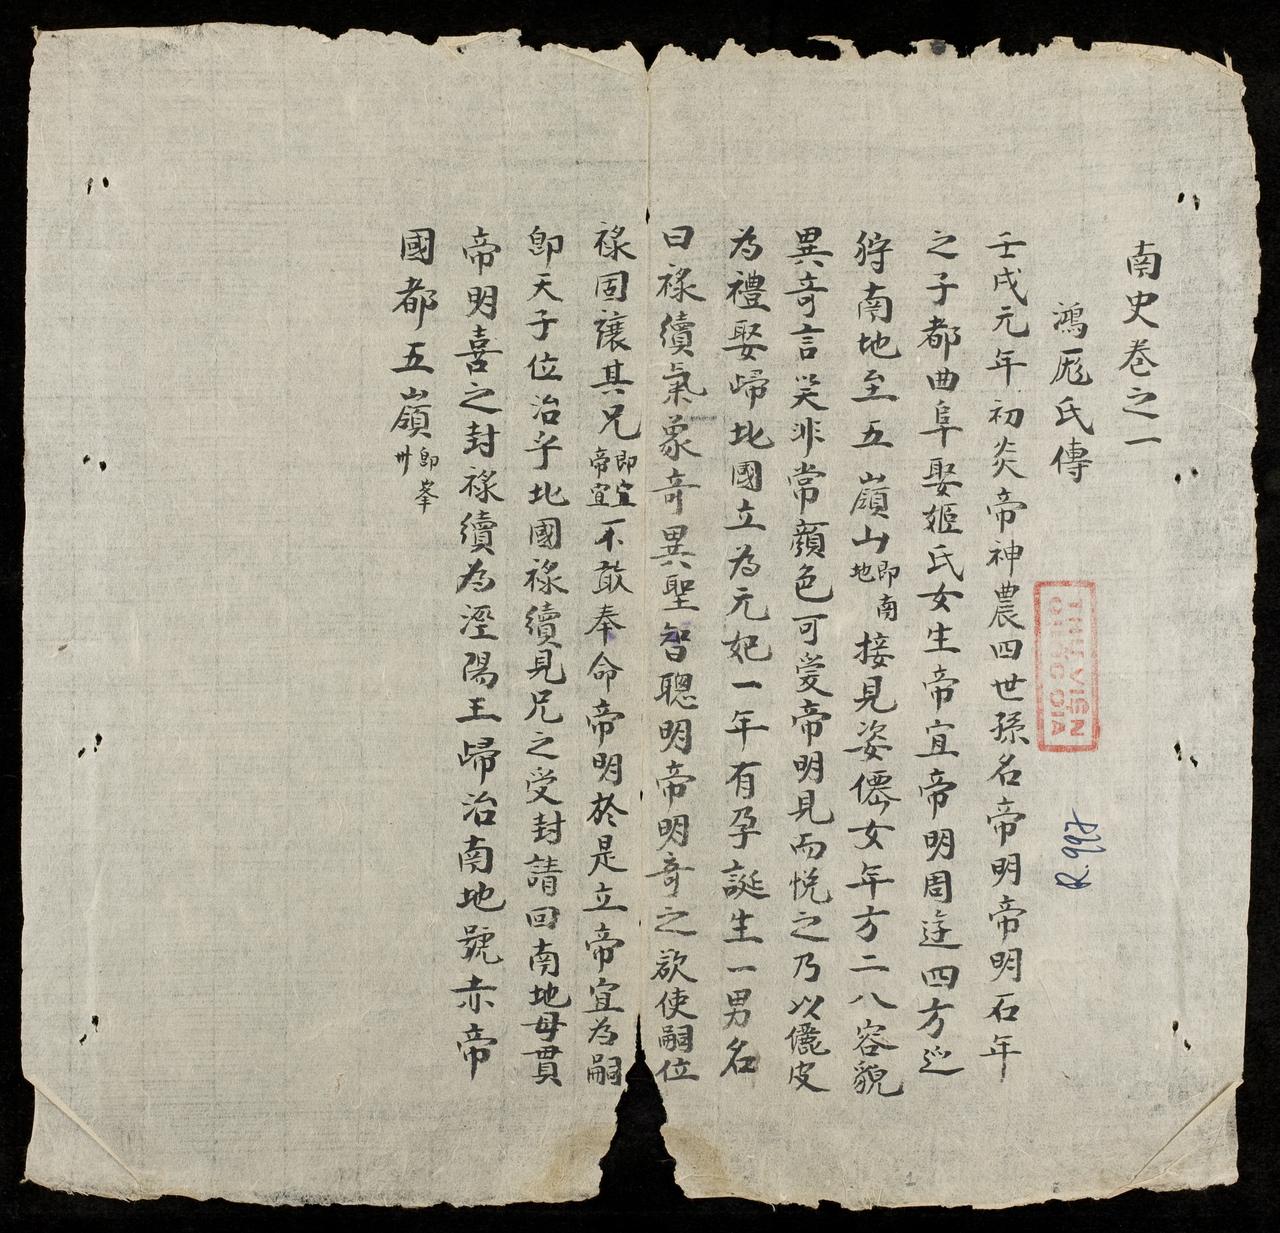 南史卷之一
鴻厖氏傳
壬戌元年初炎帝神農四世孫名帝明帝明石年
之子都曲阜娶姬氏女生帝宜帝明周迬四方巡
狩南地至五嶺山即南地接見姿僊女年方二八容貌
異奇言笑非常顏色可愛帝明見而悅之乃以儷皮
為禮娶歸北國立為元妃一年有孕誕生一男名
曰祿續氣象奇異聖智聰明帝明奇之欲使嗣位
祿固讓其兄即宜帝宜不敢奉命帝明於是立帝宜為嗣
即天子位治乎北國祿續見兄之受封請回南地母貫
帝明喜之封祿續為涇陽王歸治南地號赤帝
國都五嶺即峯卅
THƯ VIỆN
QUỐC GIA
R.997